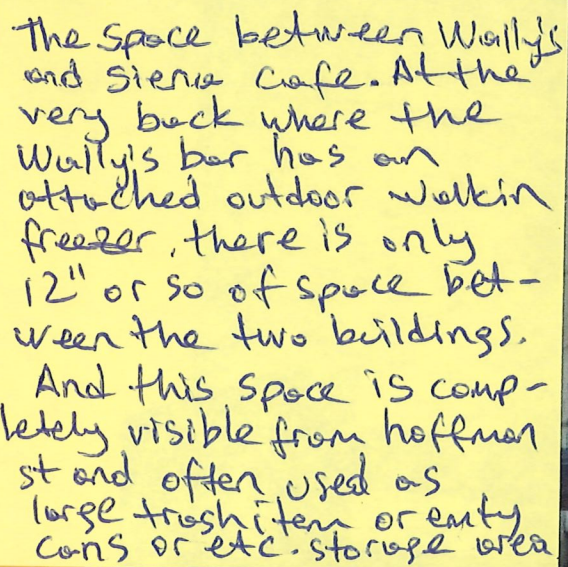 The space between Wally's
and Siena Cafe. At the
very back where the
Wally's bar has an
attached outdoor walkin
freezer, there is only
12" or so of space bet-
ween the two buildings.
And this space is comp-
letely visible from hoffman
st and often used as
large trash item or emty
cans or etc. storage area